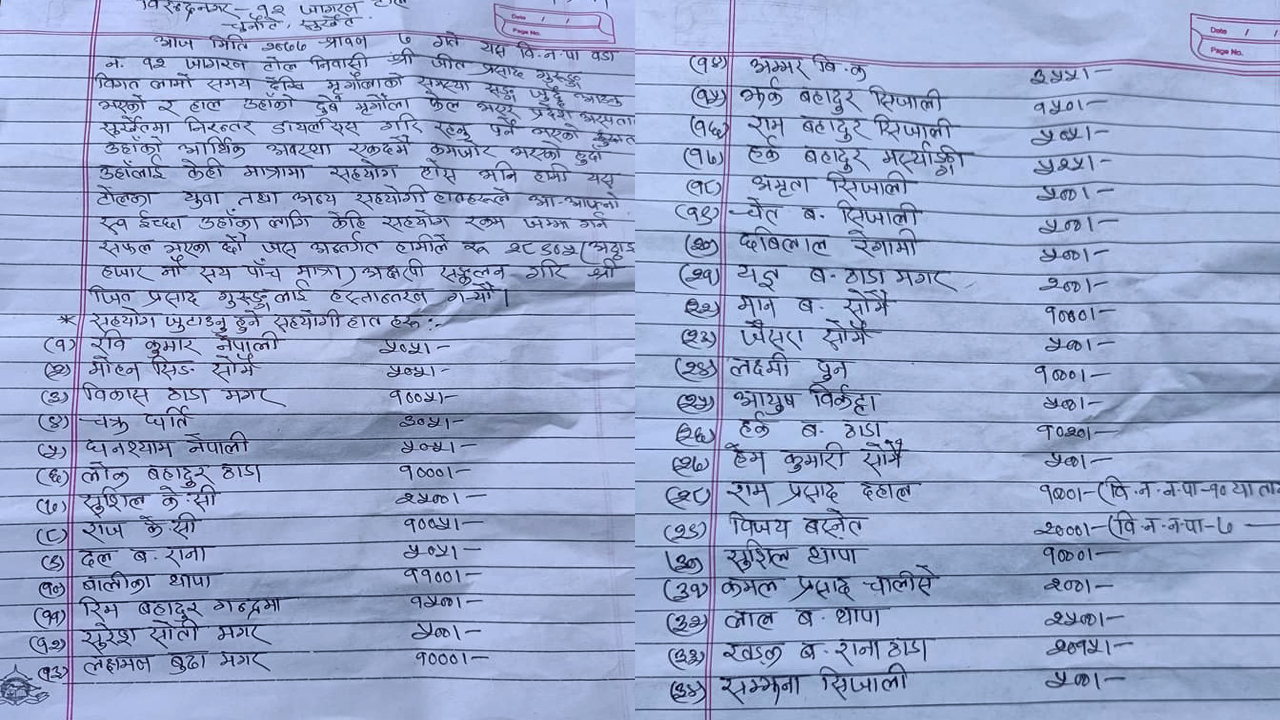 विरेन्द्रनगर - १२ जागरन टोल
सुर्खेत
Date / /
Page No.
आज मिति २०७७ श्रावन ७ गते यस वि.न.पा वडा
न. १२ जागरन टोल निवासी श्री जीत प्रसाद गुरुङ्ग
विगत लामो समय देखि मृगौलाको समस्या सङ्ग जुद्दै आउनु
भएको र हाल उहाँको दुवै मृगौला फेल भएर प्रदेश अस्पताल
सुर्खेतमा निरन्तर डायलसिस गरि रहनु पर्ने भएको हुनाले
उहाँको आर्थिक अवस्था एकदमै कमजोर भएको हुदा
उहाँलाई केही मात्रामा सहयोग होस भनि हामी यस
टोलका युवा तथा अन्य सहयोगी हातहरुले आ-आफ्नो
स्व ईच्छा उहाँका लागि केहि सहयोग रकम जम्मा गर्न
सफल भएका छौ जस अन्तर्गत हामीले रू २८९०५ (अठ्ठाइ
हजार नौ सय पाँच मात्रा) अक्षरुपी सङ्कलन गरि श्री
जित प्रसाद गुरुङ्ग लाई हस्तान्तरन गर्यौ।
* सहयोग जुटाउनु हुने सहयोगी हात हरू :-
(१) रवि कुमार नेपाली ५०५।-
(२) मोहन सिङ सोमै ५०५।-
(३) विकास ठाडा मगर १००५।-
(४) चक्र घर्ति ३०५।-
(५) घनश्याम नेपाली ५०५।-
(६) लोक बहादुर ठाडा १०००।-
(७) सुशिल के.सी २५००।-
(८) राज के.सी १००५।-
(९) दल ब. राना ५०५।-
(१०) बालीका थापा ११००।-
(११) रिम बहादुर गन्द्रमा १५००।-
(१२) सुरेश सोती मगर ५००।-
(१३) लक्षमन बुढा मगर १०००।-
Date / /
Page No.
(१४) अम्मर वि.क ३५५।-
(१५) झर्क बहादुर सिजाली १५०।-
(१६) राम बहादुर सिजाली ५०५।-
(१७) हर्क बहादुर मर्स्याङ्गी ५२५।-
(१८) अमृता सिजाली ५००।-
(१९) चेत ब. सिजाली ५००।-
(२०) दबिलाल रेगामी ५००।-
(२१) यज्ञ ब. ठाडा मगर २००।-
(२२) मान ब. सोमै १०००।-
(२३) जैसरा सोमै ५००।-
(२४) लक्ष्मी पुन १०००।-
(२५) आयुष विर्कट्टा ५००।-
(२६) हर्क ब. ठाडा १०२०।-
(२७) हेम कुमारी सोमै ५००।-
(२८) राम प्रसाद दहाल १०००।- (वि.न.न.पा-१०
(२९) विजय बस्नेत २०००।- (वि.न.न.पा-७ -
(३०) सुशिल थापा १०००।-
(३१) कमल प्रसाद चालीसे २००।-
(३२) लाल ब. थापा २५००।-
(३३) खडक ब. राना ठाडा २०१५।-
(३४) सम्झना सिजाली ५००।-